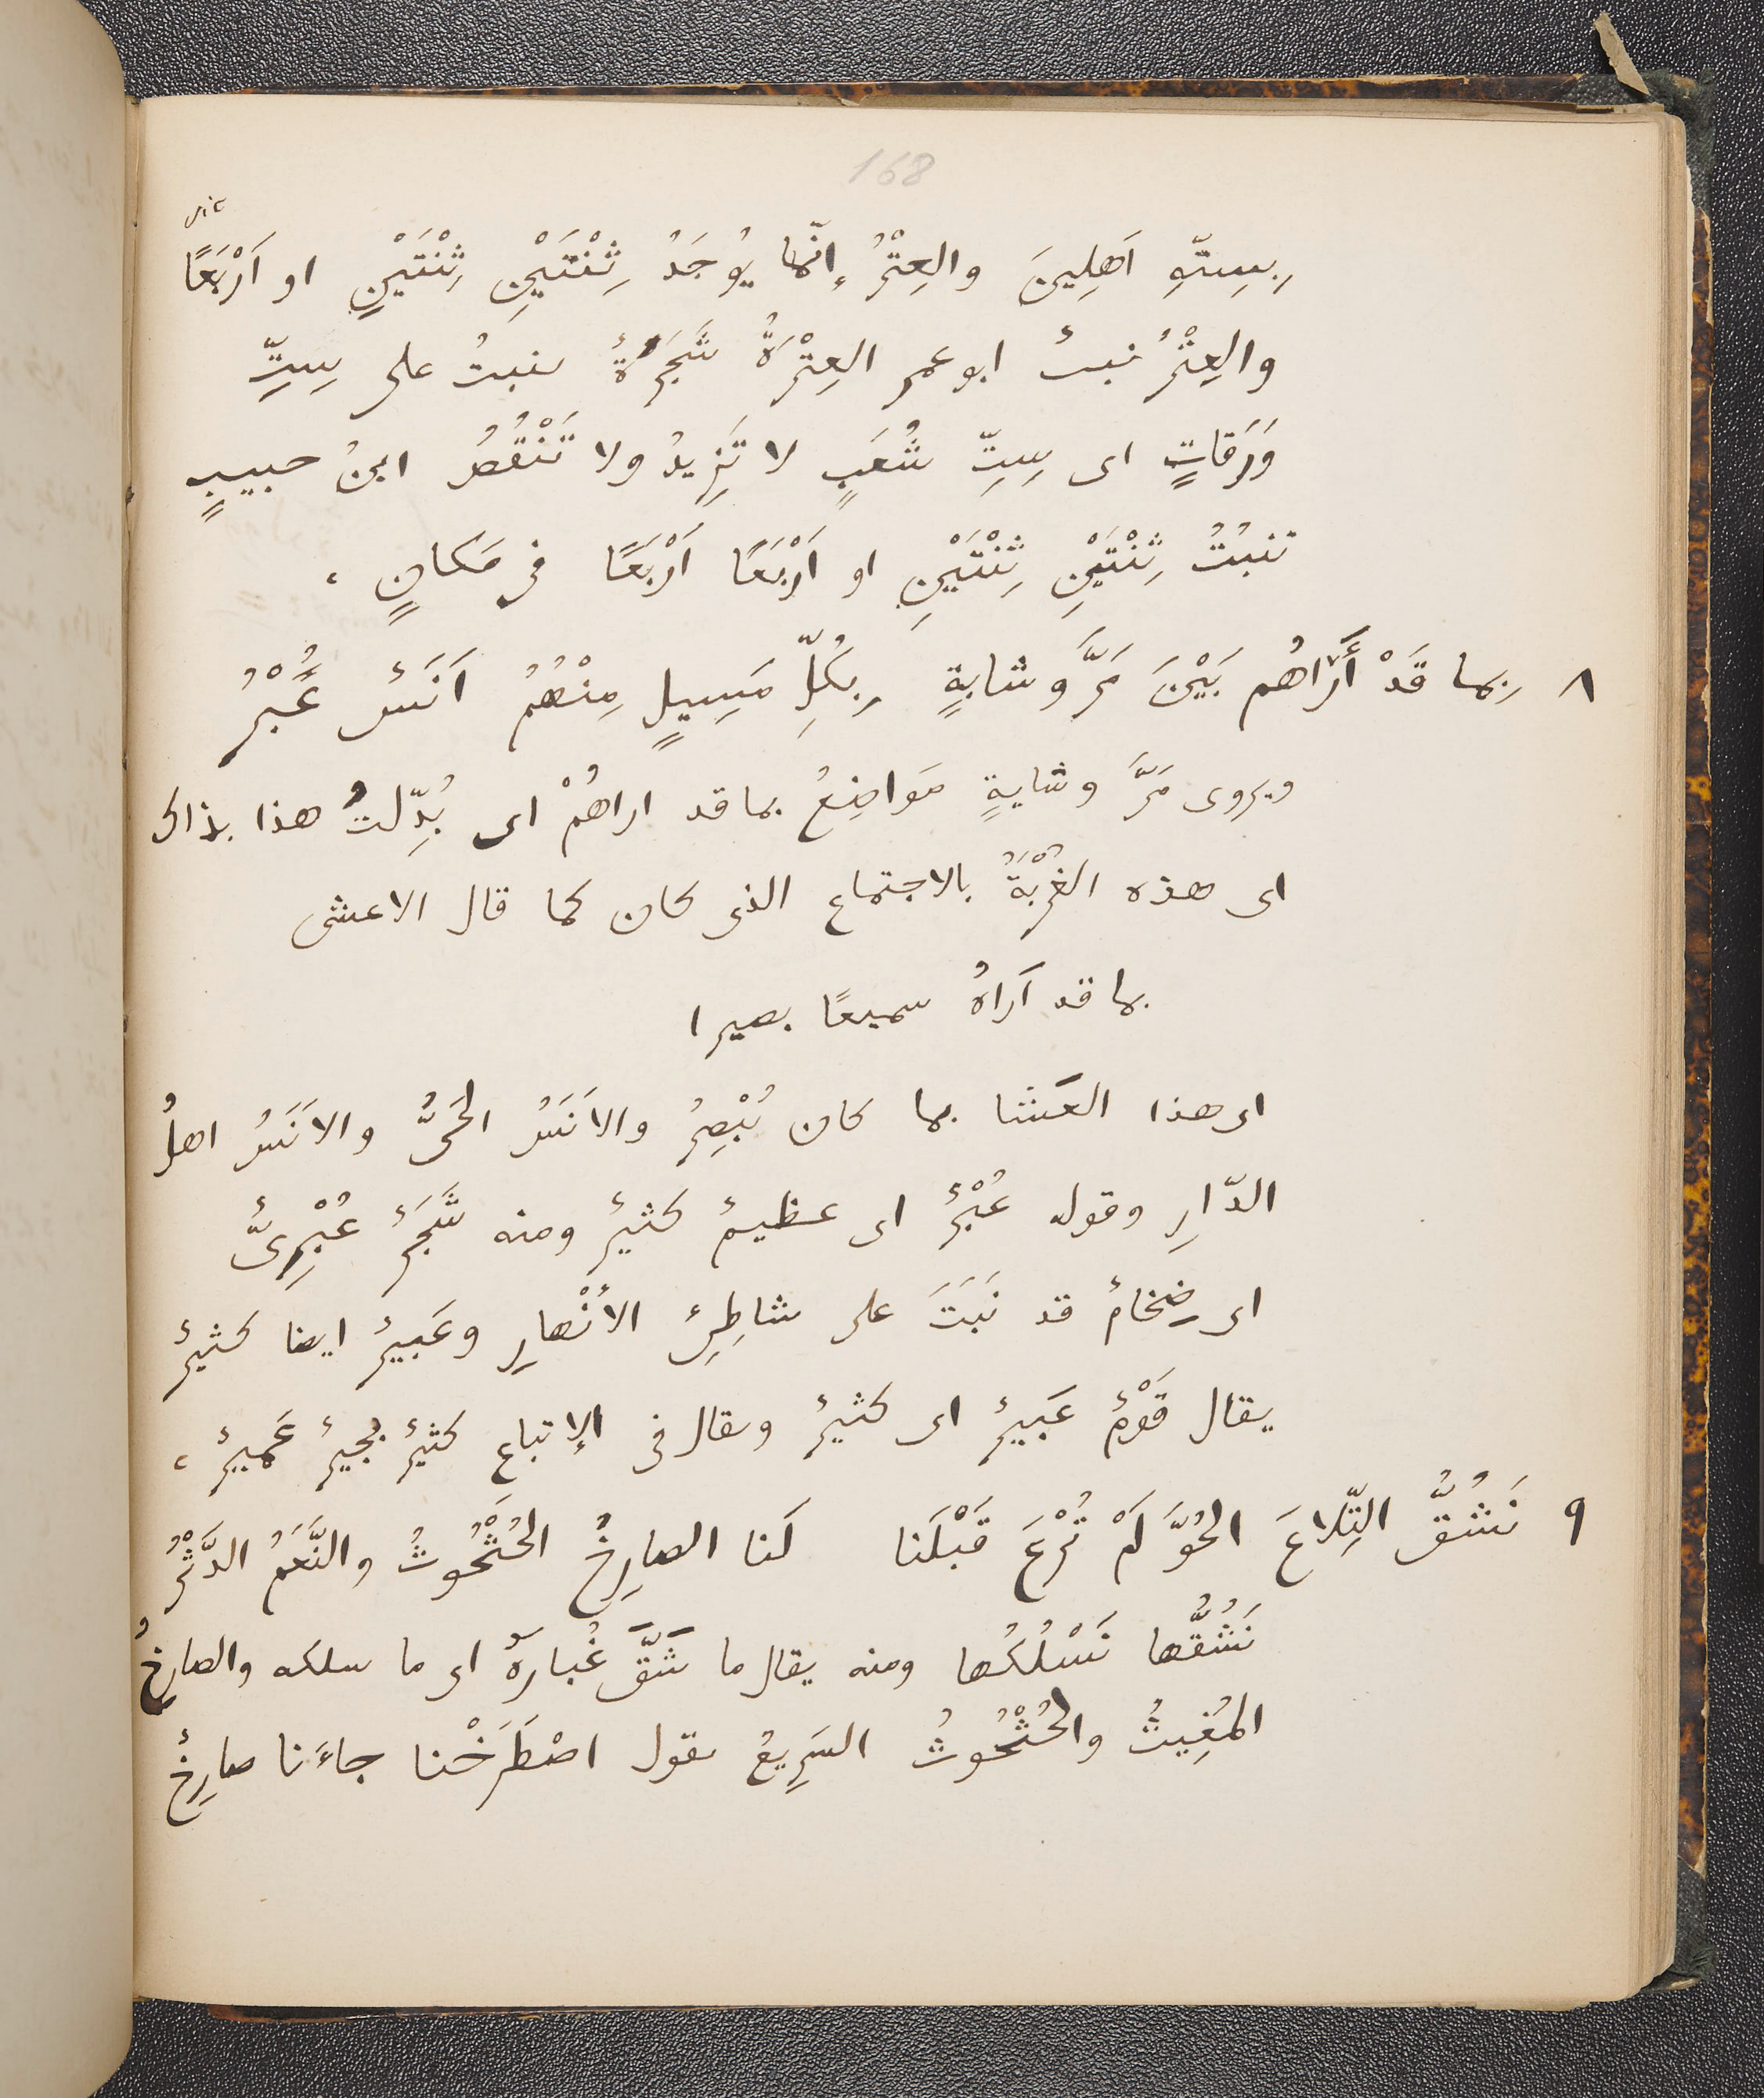 168
sic
بِسِتّةِ اَهلِينَ والعِتْرُ إنّما يُوجَدُ ثِنْتَيْنِ ثِنْتَيْنِ او اَرْبَعًا
والعِتْرُ نبتٌ ابو عمرٍ العِتْرَةُ شَجَرَةٌ ينبتُ على سِتِّ
وَرَقاتٍ اى سِتِّ شُعَبٍ لا تَزِيدُ ولا تَنْقُصُ ابنُ حبيبٍ
تنبُتُ ثِنْتَيْنِ ثِنْتَيْنِ او اَرْبَعًا اَرْبَعًا فى مَكانٍ ،
٨ بِما قَدْ أَرَاهُم بَيْنَ مَرَّ وشابةٍ بِكُلِّ مَسِيلٍ مِنْهُمُ اَنَسٌ عُبْرُ
ويروى مَرَّ وشايةٍ مَواضِعُ بما قد اراهُمْ اى بُدِّلتُ هذا بذاك
اى هذه الغُرْبَةُ بالاجتماع الذى كان كما قال الاعشى
بما قد اَراهُ سميعًا بصيرا
اى هذا العَشا بما كان يُبْصِرُ والاَنَسُ الحَىُّ والاَنَسُ اهلُ
الدّارِ وقوله عُبْرٌ اى عظيمٌ كثيرٌ ومنه شَجَرٌ عُبْرِىٌّ
اى ضِخامٌ قد نَبَتَ على شاطِئِ الأنْهارِ وعَبِيرٌ ايضا كثيرٌ
يقال قَوْمٌ عَبِيرٌ اى كثيرٌ ويقال فى الإتباع كثيرٌ بجيرٌ عَمِيرٌ ،
٩ نَشُقُّ التِّلاعَ الحُوَّ لَمْ تُرْعَ قَبْلَنا لَنا الصارِخُ الحُثْحُوثُ والنَّعَمُ الدَّثْرُ
نَشُقُّها نَسْلُكُها ومنه يقال ما شَقَّ غُبارَهُ اى ما سلكه والصارِخُ
المُغِيثُ والحُثْحُوثُ السَرِيعُ يقول اصْطَرَخْنا جاءَنا صارِخٌ